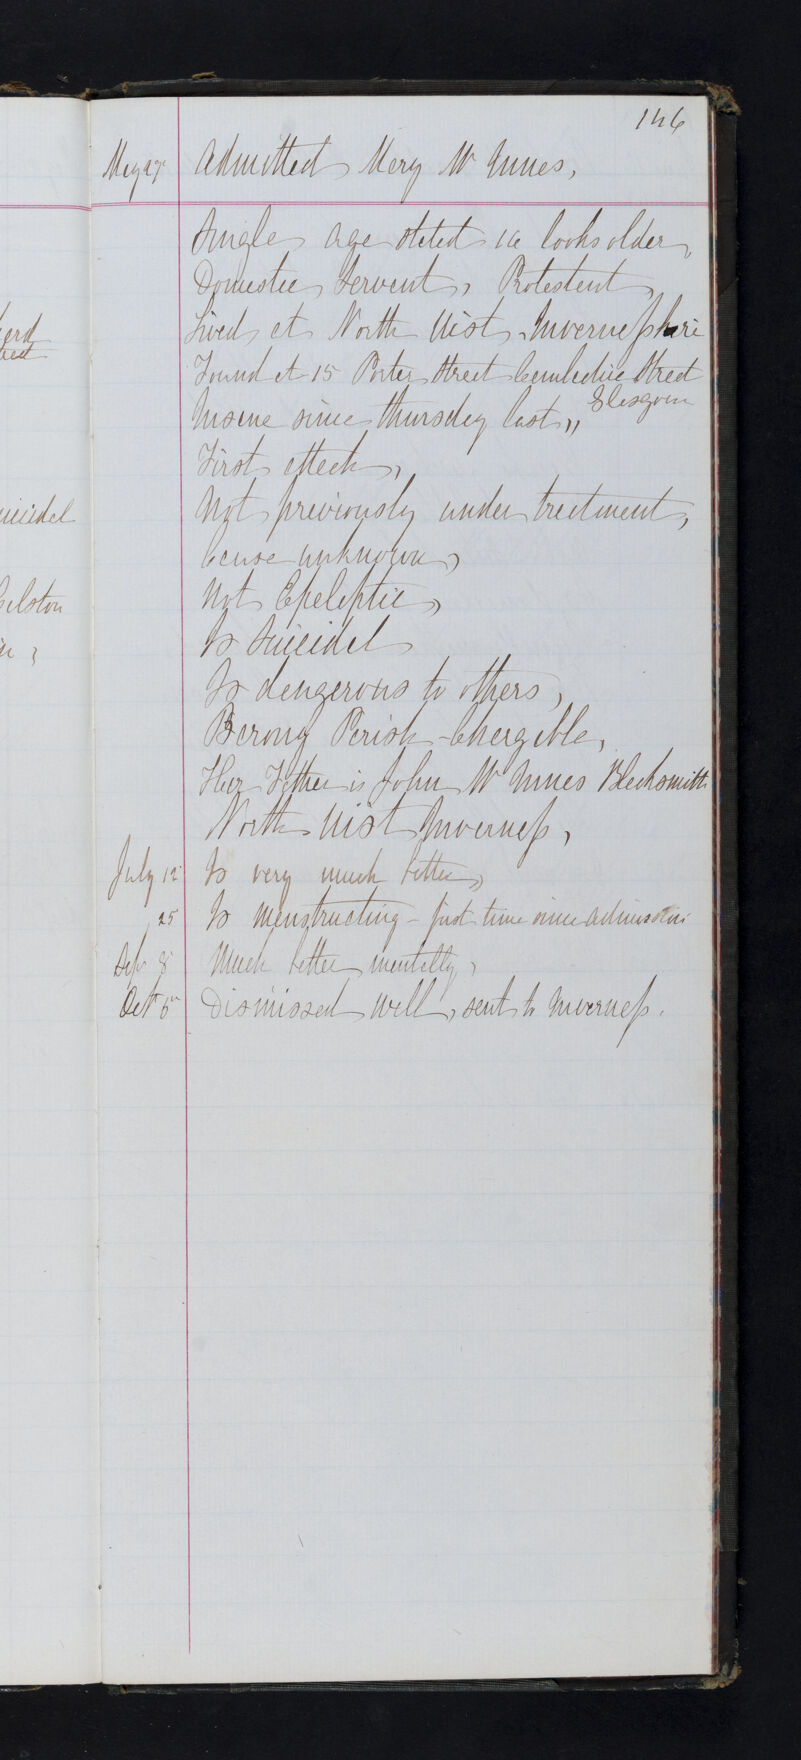 146
May 27 Admitted Mary Mc Innes,
Single, age stated 16 looks older,
Domestic Servant, Protestant,
Lived at North Uist, Invernesshire
Found at 15 Porter Street Street
Glasgow
Insane since thursday last,,
First attack,
Not previously under treatment,
Cause unknown,
Not Epeleptic,
Is Suicidal
Is dangerous to others,
Barony Parish - Chargable,
Her Father is John Mc Innes Blacksmith
North Uist Inverness,
July 12 Is very much better,
25 Is menstructing - first time since admission
Sep 8 Much better mentally,
Oct 5th Dismissed well, sent to Inverness.
uicidal